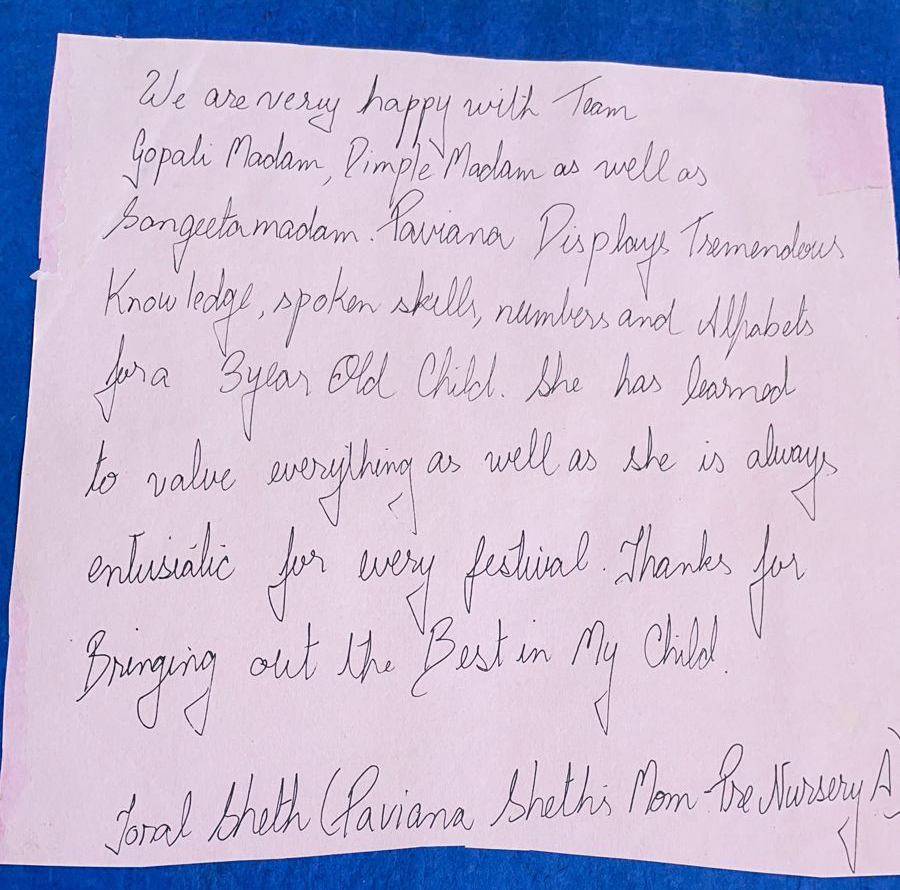 We are very happy with Team
Gopali Madam, Dimple Madam as well as
Sangeeta madam. Paviana Displays Tremendous
Knowledge, spoken skills, numbers and Alpabets
for a 3 year Old Child. She has learned
to value everything as well as she is always
entusiatic for every festival. Thanks for
Bringing out the Best in My Child.
Toral Sheth (Paviana Sheth's Mom Pre Nursery A)